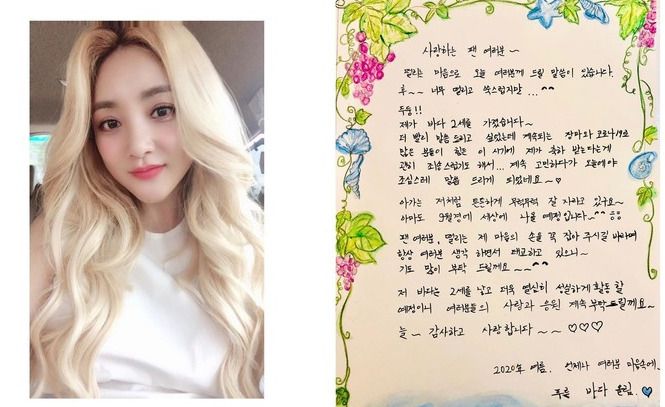 사랑하는 팬 여러분~
떨리는 마음으로 오늘 여러분께 드릴 말씀이 있습니다.
후~~ 너무 떨리고 쑥스럽지만...^^
두둥!!
제가 바다 2세를 가졌습니다~
더 빨리 말씀 드리고 싶었는데 계속되는 장마와 코로나19로
많은 분들이 힘든 이 시기에 제가 축하 받는다는게
괜히 죄송스럽기도 해서... 계속 고민하다가 오늘에야
조심스레 말씀 드리게 되었네요~♡
아가는 저처럼 튼튼하게 무럭무럭 잘 자라고 있구요~
아마도 9월경에 세상에 나올 예정입니다~^^
팬 여러분, 떨리는 제 마음의 손을 꼭 잡아 주시길 바라며
항상 여러분 생각 하면서 태교하고 있으니~
기도 많이 부탁 드릴께요~~^^
저 바다는 2세를 낳고 더욱 열심히 성실하게 활동 할
예정이니 여러분들의 사랑과 응원 계속 부탁드릴께요~
늘~ 감사하고 사랑합니다~~♡♡♡
2020年 여름. 언제나 여러분 마음속에..
푸를 바다 올림.♥